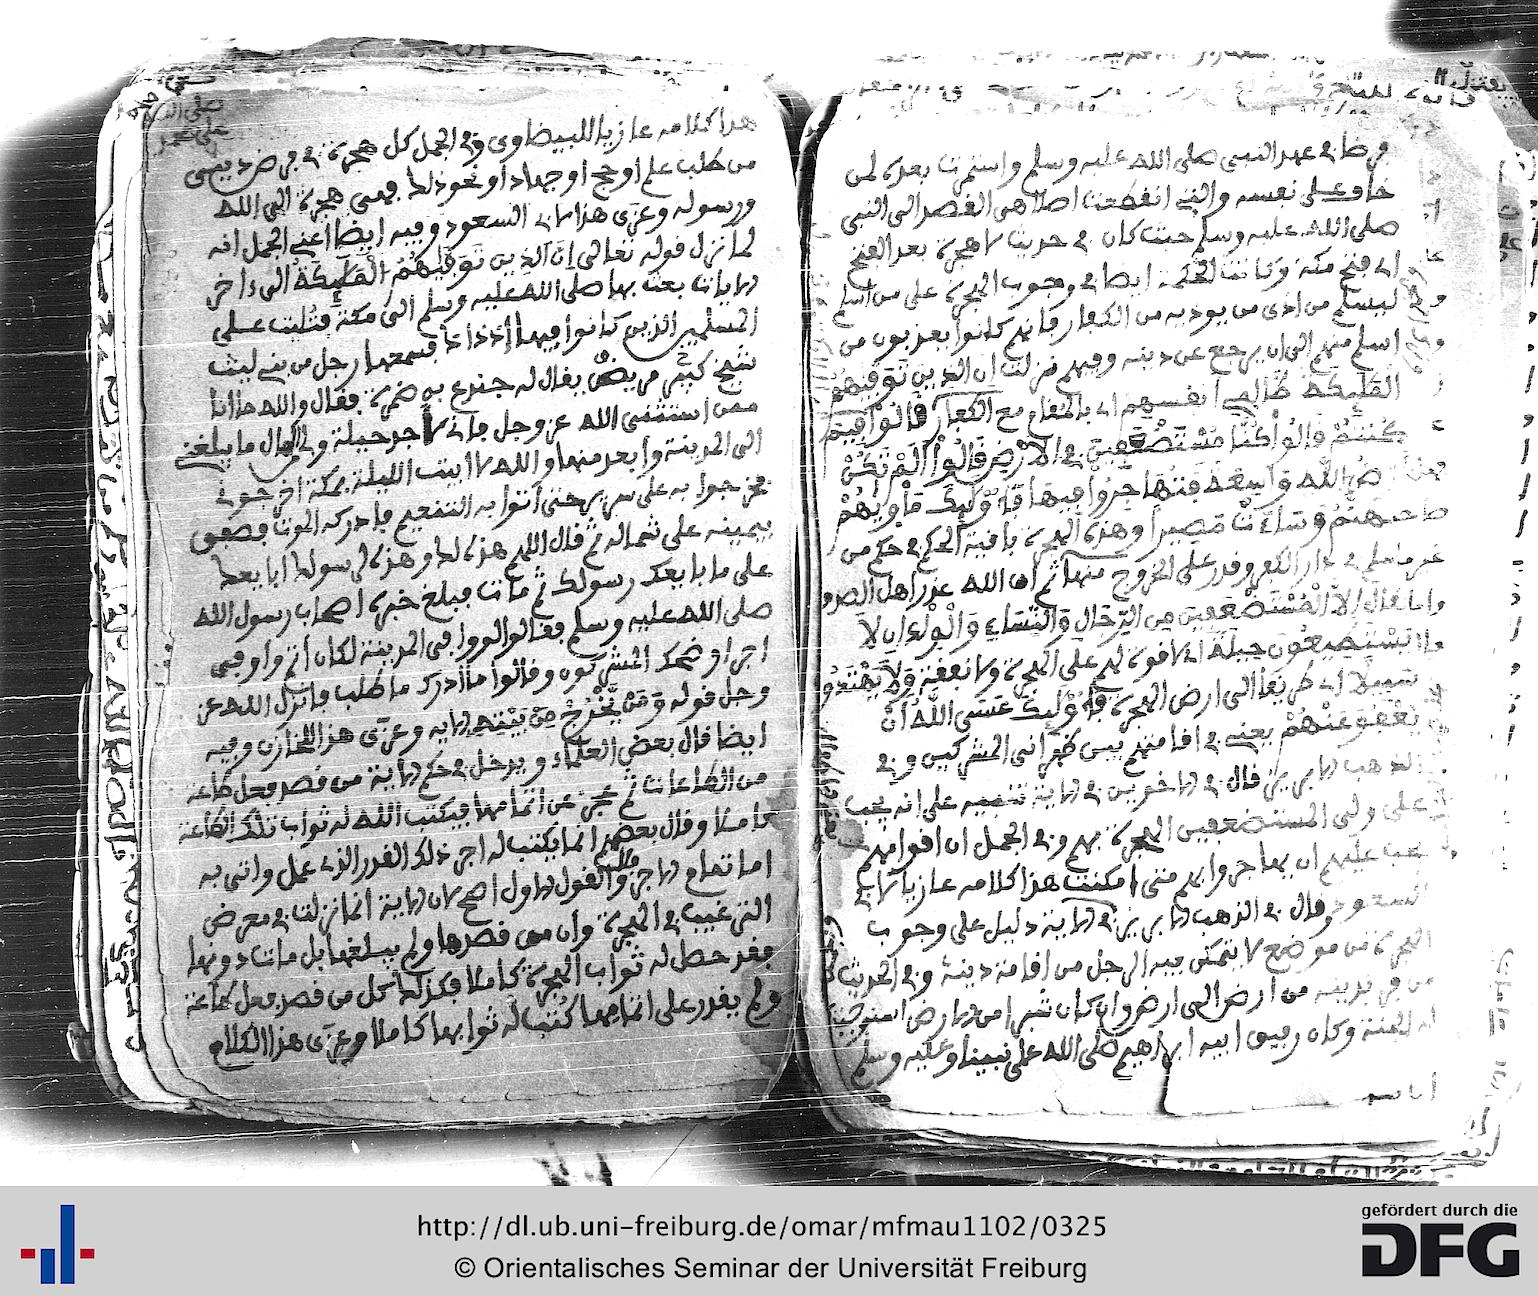 فرضا في عهد النبي صلى الله عليه وسلم واستمرت بعده لمن
خاف على نفسه والتي انقطعت اصلا هي القصد الى النبي
صلى الله عليه وسلم حيث كان في حديث لا هجرة بعد الفتح
اي فتح مكة وكانت الحكمة ايضا في وجوب الهجرة على من اسلم
ليسلم من اذى من يوذيه من الكفار فانهم كانوا يعذبون من
اسلم منهم الى ان يرجع عن دينه وفيهم نزلت ان الذين توفيهم
الملئكة ظالمي انفسهم اي بالمقام مع الكفار قالوا فيم
كنتم قالوا كنا مستضعفين في الارض قالوا الم تكن
ارض الله واسعة فتهاجروا فيها فاولئك ماويهم
جهنم وساءت مصيرا وهذه الهجرة باقية الحكم في حكم من
اسلم في دار الكفر وقدر على الخروج منها ثم ان الله عذر اهل الصدق
فقال الا المستضعفين من الرجال والنساء والولدان لا
يستطيعون حيلة اي لا قوة لهم على الهجرة ولا نفقة ولا يهتدون
سبيلا اي طريقا الى ارض الهجرة فاولئك عسى الله ان
يعفو عنهم يعني في اقامتهم بين ظهراني المشركين وفي
الذهب الابريز قال في الاخرين في الاية تنبيه على انه يجب
على ولي المستضعفين الهجرة بهم وفي الجمل ان اقوامهم
يجب عليهم ان يهاجروا بهم متى امكنت هذا كلامه عازيا لابي
السعود وقال في الذهب الابريز في الاية دليل على وجوب
الهجرة من موضع لا يتمكن فيه الرجل من اقامة دينه وفي الحديث
من فر بدينه من ارض الى ارض وان كان شبرا من الارض استوجبت
له الجنة وكان رفيق ابيه ابراهيم صلى الله على نبينا وعليه وسلم
هذا كلامه عازيا للبيضاوي وفي الجمل كل هجرة في غرض ديني
من طلب علم او حج او جهاد او نحو ذلك فهي هجرة الى الله
ورسوله وعزى هذا لابي السعود وفيه ايضا اعني الجمل انه
لما نزل قوله تعالى ان الذين توفيهم الملئكة الى ءاخر
الايات بعث بها صلى الله عليه وسلم الى مكة فتليت على
المسلمين الذين كانوا فيها اذ ذاك فسمعها رجل من بني ليث
شيخ كبير مريض يقال له جندع بن ضمرة فقال والله ما انا
ممن استثنى الله عز وجل فاني لاجد حيلة ولي من المال ما يبلغني
الى المدينة وابعد منها والله لا ابيت الليلة بمكة اخرجوني
فخرجوا به على سرير حتى اتوا به التنعيم فادركه الموت فصفق
بيمينه على شماله ثم قال اللهم هذه لك وهذه لرسولك ابايعك
على ما بايعك رسولك ثم مات فبلغ خبره اصحاب رسول الله
صلى الله عليه وسلم فقالوا لو وافى المدينة لكان اتم واوفى
اجرا وضحك المشركون وقالوا ما ادرك ما طلب فانزل الله عز
وجل قوله ومن يخرج من بيته الاية وعزى هذا للخازن وفيه
ايضا قال بعض العلماء ويدخل في حكم الاية من قصد فعل طاعة
من الطاعات ثم عجز عن اتمامها فيكتب الله له ثواب تلك الطاعة
كاملا وقال بعضهم انما يكتب له اجر ذلك القدر الذي عمل واتى به
اما تمام الاجر فلا والقول الاول اصح لان الاية انما نزلت في معرض
الترغيب في الهجرة وان من قصدها ولم يبلغها بل مات دونها
فقد حصل له ثواب الهجرة كاملا فكذلك كل من قصد فعل طاعة
ولم يقدر على اتمامها كتب له ثوابها كاملا وعزى هذا الكلام
http://dl.ub.uni-freiburg.de/omar/mfmau1102/0325
© Orientalisches Seminar der Universität Freiburg
gefördert durch die
DFG